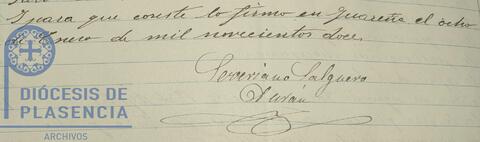 Y para que conste lo firmo en Guareña el ocho
de Enero de mil novecientos doce.
Severiano Salguero
Durán
DIÓCESIS DE
PLASENCIA
ARCHIVOS